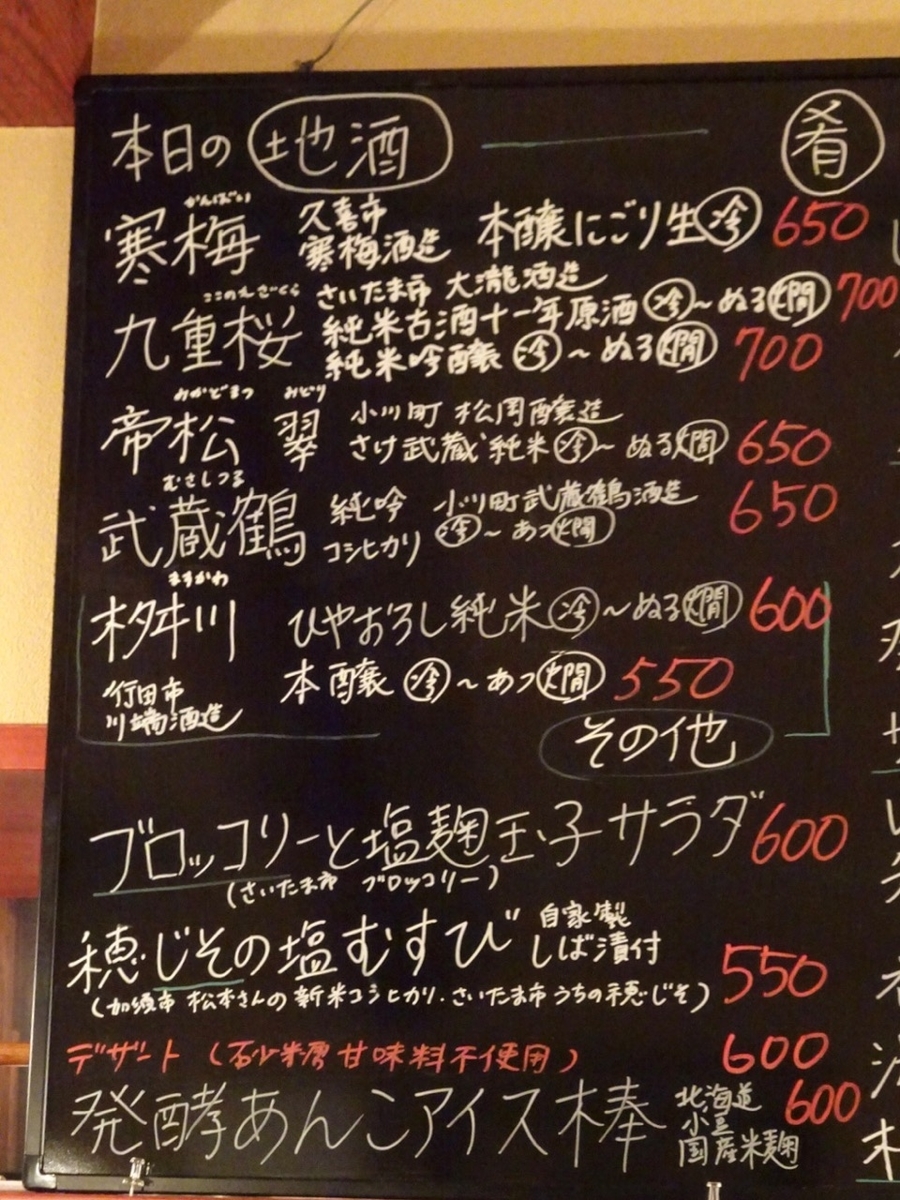 本日の 地酒 肴
かんばい
寒梅 久喜市 寒梅酒造 本醸にごり生 冷 650
ここのえざくら
九重桜 さいたま市 大瀧酒造
純米古酒十一年原酒 冷～ぬる燗 700
純米吟醸 冷～ぬる燗 700
みかどまつ みどり
帝松 翠 小川町 松岡醸造
さけ武蔵 純米 冷～ぬる燗 650
むさしつる
武蔵鶴 純吟 小川町武蔵鶴酒造 650
コシヒカリ 冷～あつ燗
ますかわ
桝川 ひやおろし純米 冷～ぬる燗 600
本醸 冷～あつ燗 550
行田市
川端酒造
その他
ブロッコリーと塩麹玉子サラダ 600
(さいたま市 ブロッコリー)
穂じその塩むすび 自家製 しば漬付 550
(加須市 松本さんの新米コシヒカリ.さいたま市うちの穂じそ)
デザート (砂糖甘味料不使用) 600
発酵あんこアイス棒 北海道 小豆 国産米麹 600